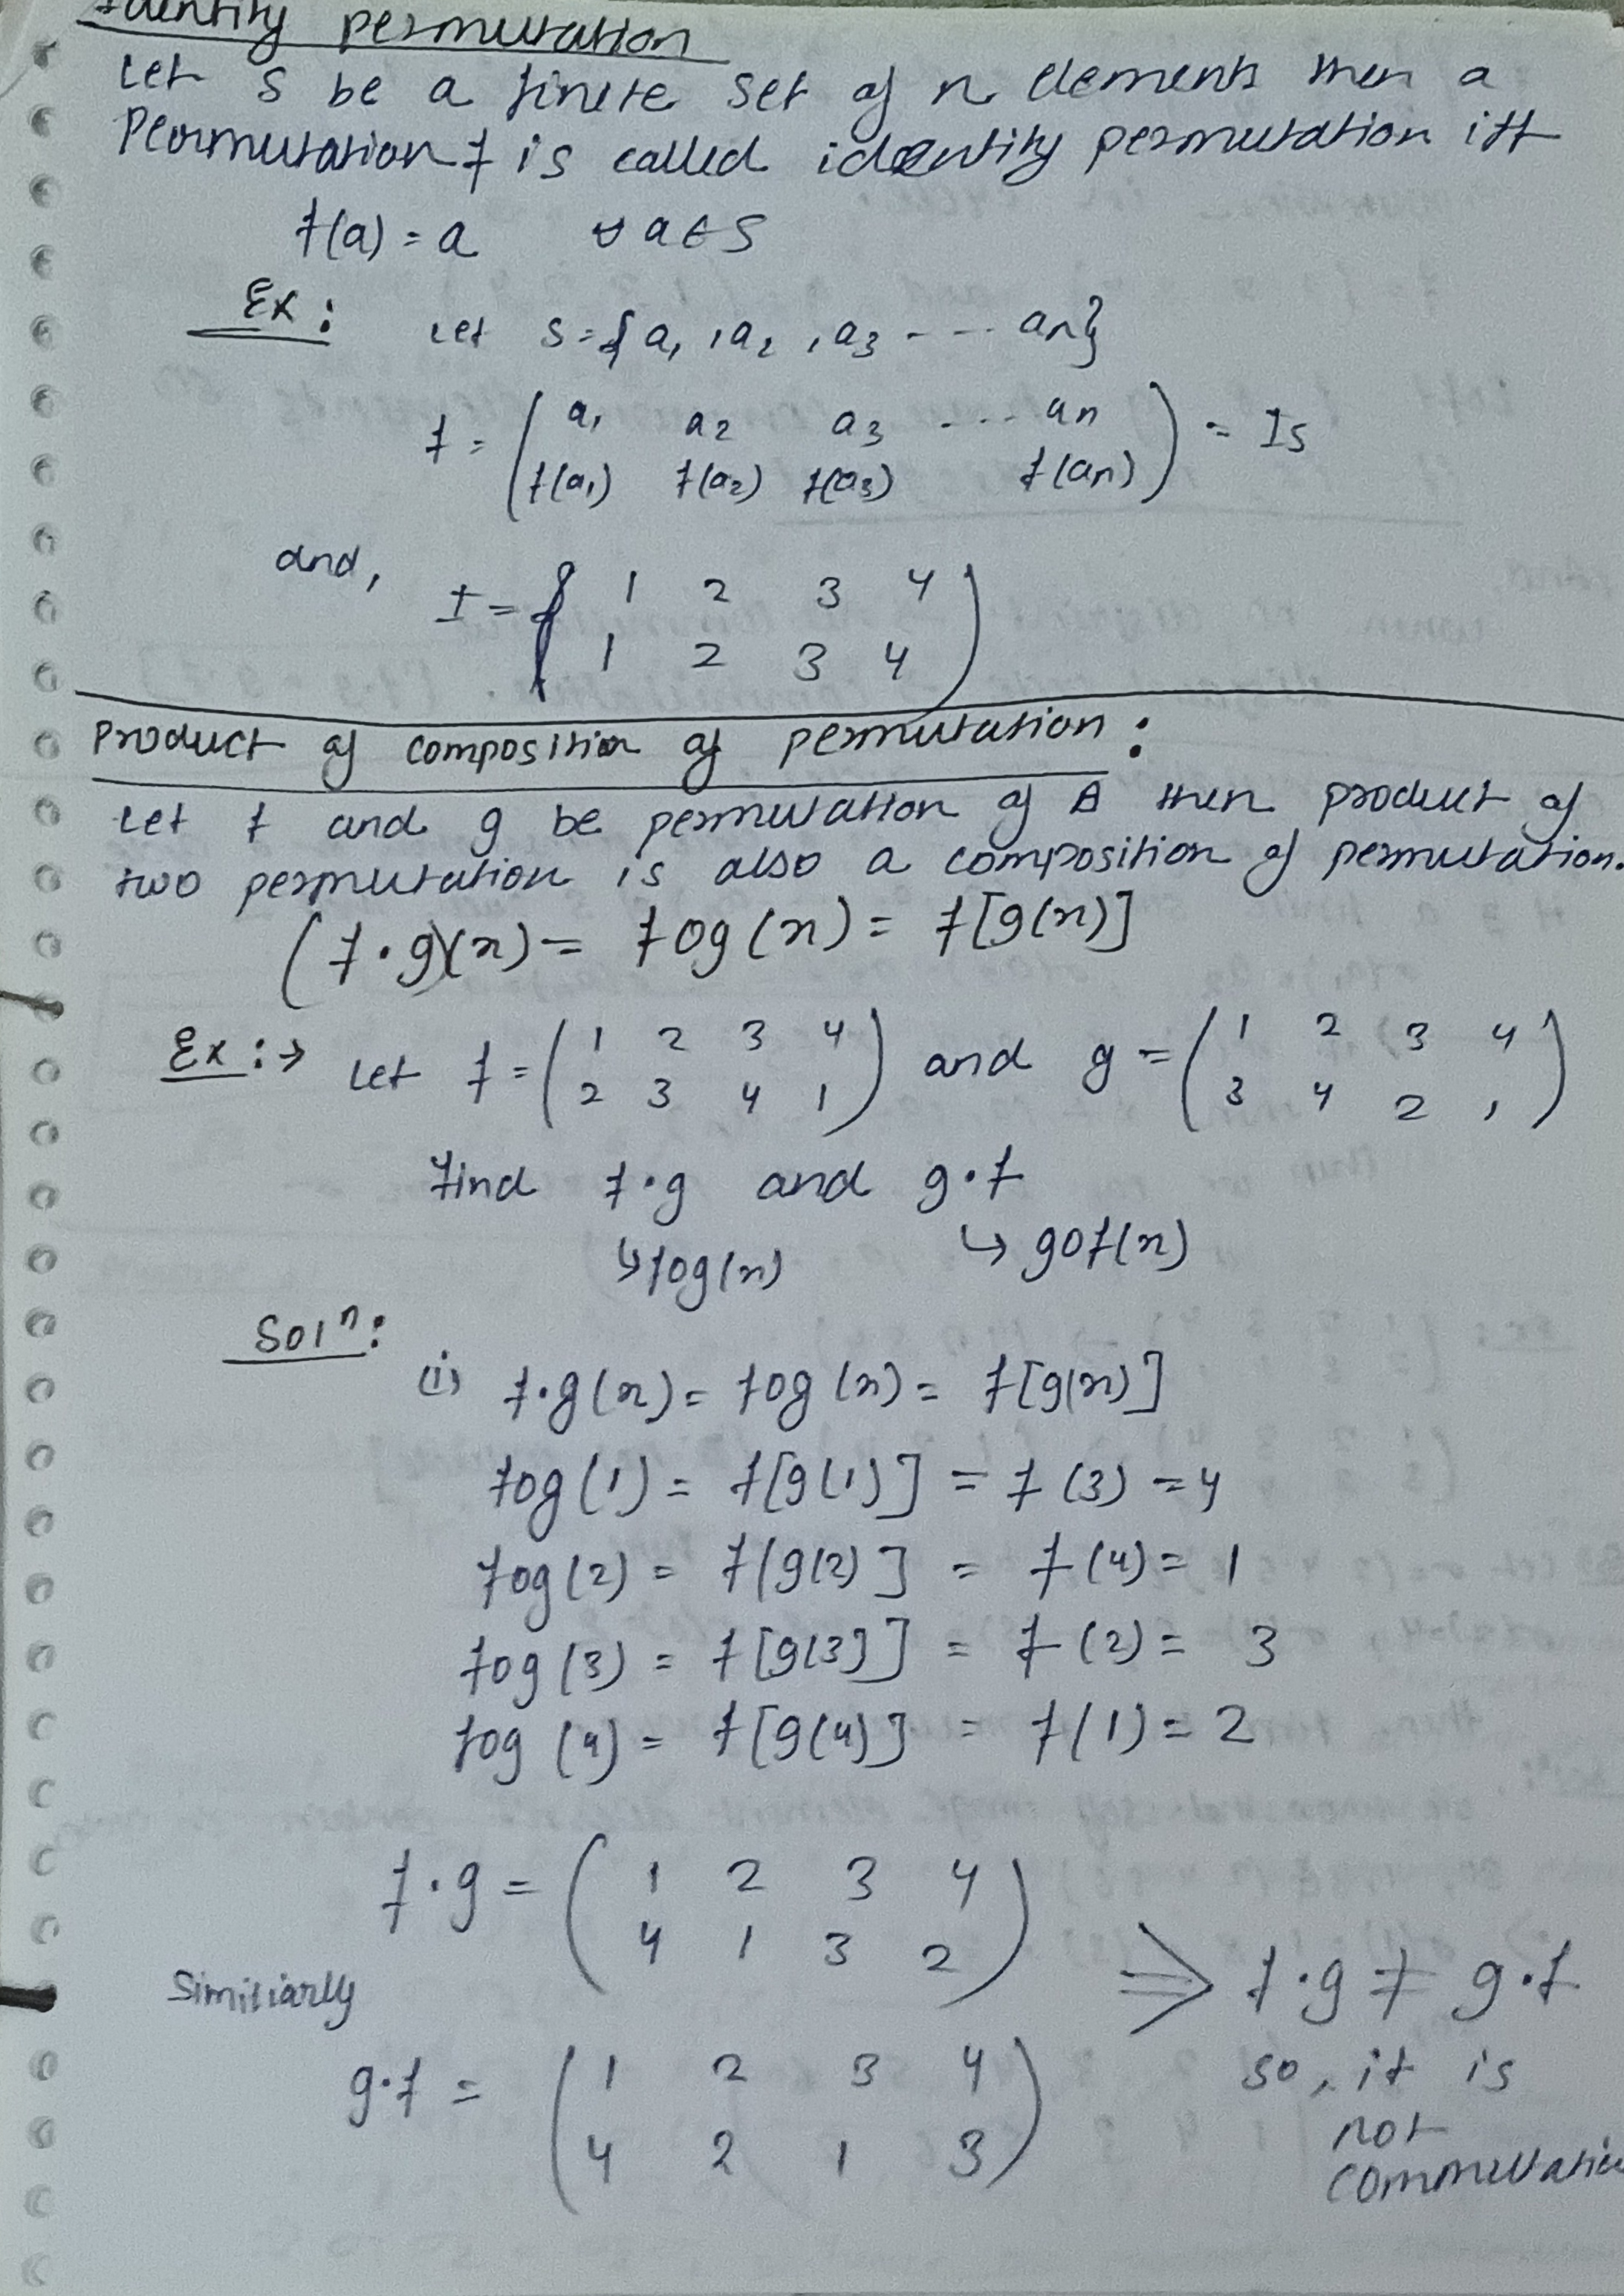 Identity permutation
Let S be a finite set of n elements then a
Permutation f is called identity permutation iff
f(a) = a ∀ a ∈ S
Ex: Let S = { a₁, a₂, a₃ - - - - an}
f = ( a₁ a₂ a₃ - - - - an ) = Is
( f(a₁) f(a₂) f(a₃) f(an) )
and, I = ( 1 2 3 4 )
( 1 2 3 4 )
Product of composition of permutation :
Let f and g be permutation of A then product of
two permutation is also a composition of permutation.
(f·g)(x) = fog(x) = f[g(x)]
Ex :→ Let f = ( 1 2 3 4 ) and g = ( 1 2 3 4 )
( 2 3 4 1 ) ( 3 4 2 1 )
find f·g and g·f
↳ fog(x) ↳ gof(x)
Solⁿ:
(i) f·g(x) = fog(x) = f[g(x)]
fog(1) = f[g(1)] = f(3) = 4
fog(2) = f[g(2)] = f(4) = 1
fog(3) = f[g(3)] = f(2) = 3
fog(4) = f[g(4)] = f(1) = 2
f·g = ( 1 2 3 4 )
( 4 1 3 2 )
Similiarly
⇒ f·g ≠ g·f
g·f = ( 1 2 3 4 )
( 4 2 1 3 )
so, it is
not
commutative